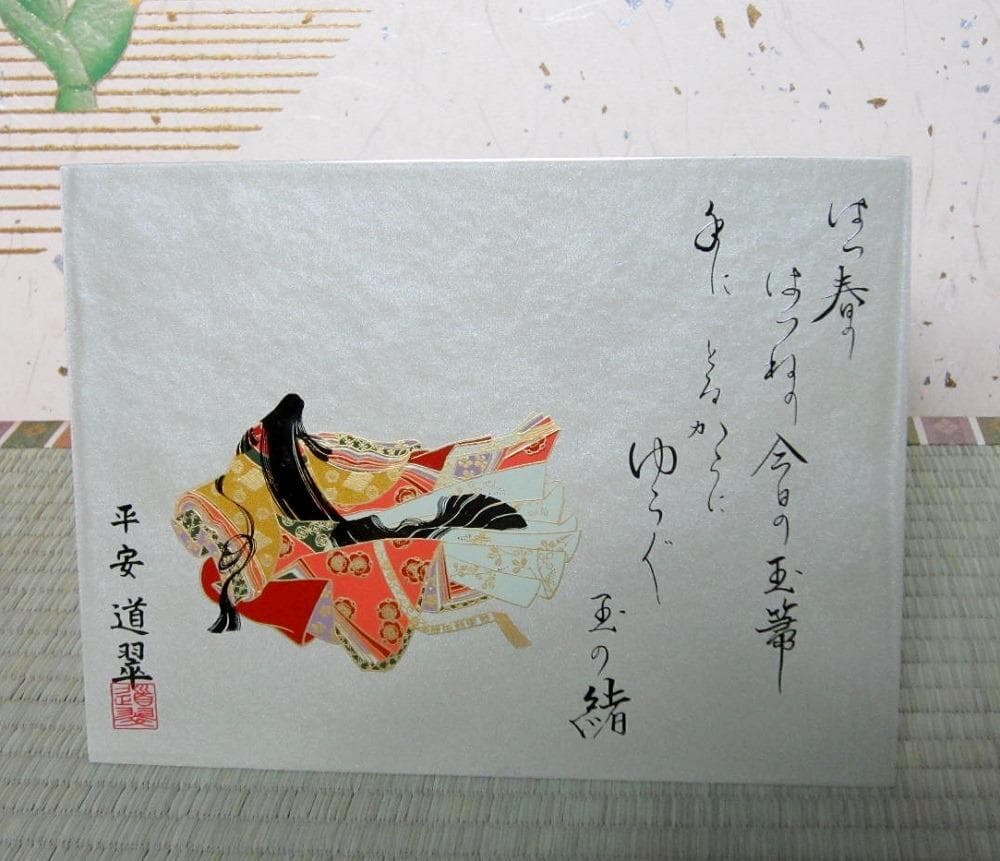 はつ春の
はつねの今日の玉箒
手に
とるからに
ゆらぐ
玉の緒
平安 道翠